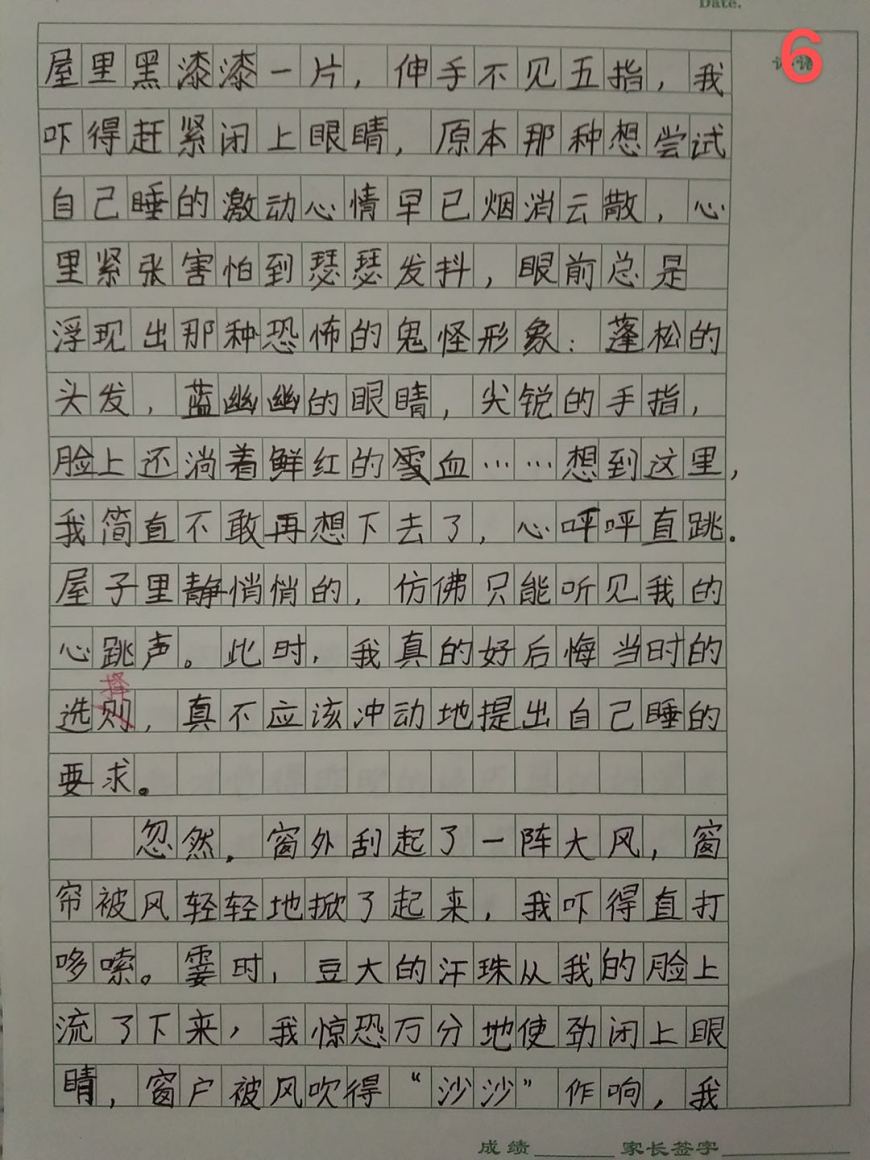 Date.
6
屋里黑漆漆一片，伸手不见五指，我
吓得赶紧闭上眼睛，原本那种想尝试
自己睡的激动心情早已烟消云散，心
里紧张害怕到瑟瑟发抖，眼前总是
浮现出那种恐怖的鬼怪形象：蓬松的
头发，蓝幽幽的眼睛，尖锐的手指，
脸上还淌着鲜红的血……想到这里，
我简直不敢再想下去了，心呯呯直跳。
屋子里静悄悄的，仿佛只能听见我的
心跳声。此时，我真的好后悔当时的
择
选则，真不应该冲动地提出自己睡的
要求。
忽然，窗外刮起了一阵大风，窗
帘被风轻轻地掀了起来，我吓得直打
哆嗦。霎时，豆大的汗珠从我的脸上
流了下来，我惊恐万分地使劲闭上眼
睛，窗户被风吹得“沙沙”作响，我
成绩 家长签字